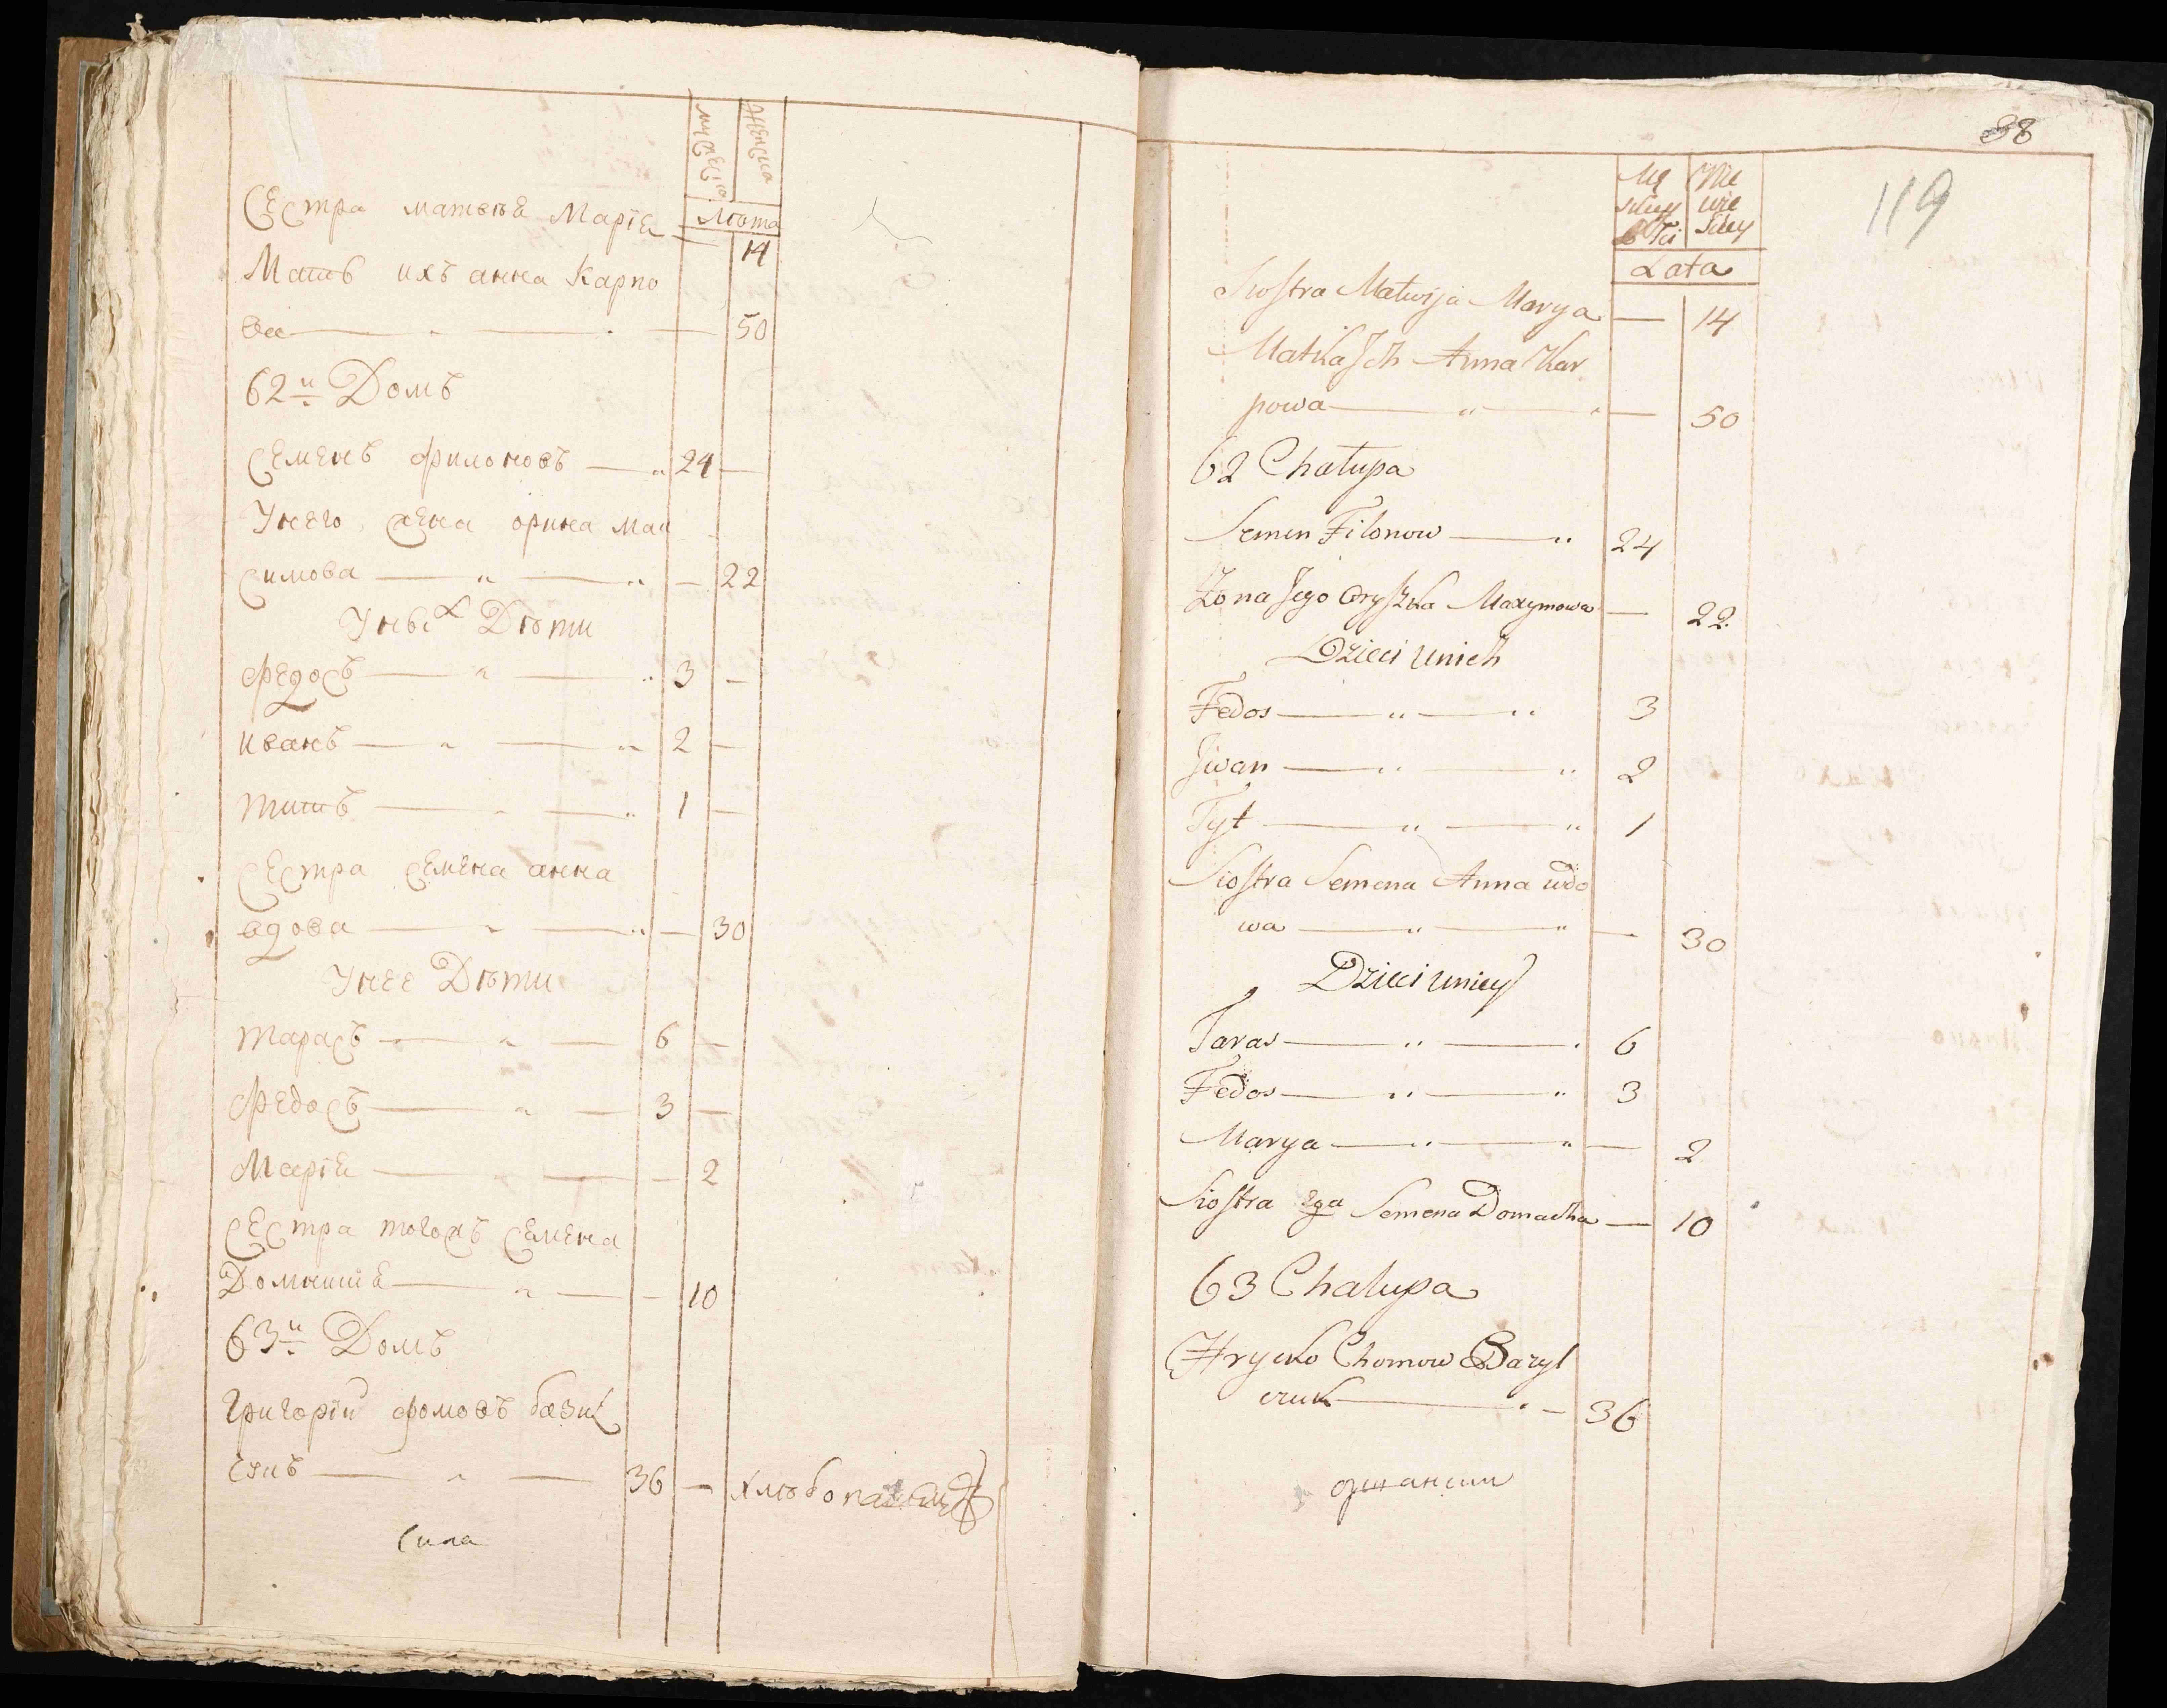 мужеска женска
Лѣта
Сестра матвѣя Марїя — 14
Мать ихъ анна Карпо
ва — 50
62й Домъ
Семенъ филоновъ — 24 —
Унего жена орина Мак
симова — 22
Унихъ Дѣти
федосъ — 3 —
иванъ — 2 —
титъ — 1 —
Сестра семена анна
вдова — 30
Унее Дѣти
тарасъ — 6 —
федосъ — 3 —
Марїя — 2
Сестра тогожъ семена
10
63й Домъ
григорїй фомовъ базил
36 —
Сила
38
119
Lata
Siostra Matwija Marya — 14
Matka Jch Anna Kar
powa — 50
62 Chałupa
Semen Filonow — 24
Żona Jego Oryszka Maxymowa — 22
Dzieci unich
Fedos — 3
Jwan — 2
Tyt — 1
Siostra Semena Anna wdo
wa — 30
Dzieci uniey
Taras — 6
Fedos — 3
Marya — 2
Siostra 2ga Semena Domacha — 10
63 Chałupa
Hrycko Chomow Bazyl
czuk — 36